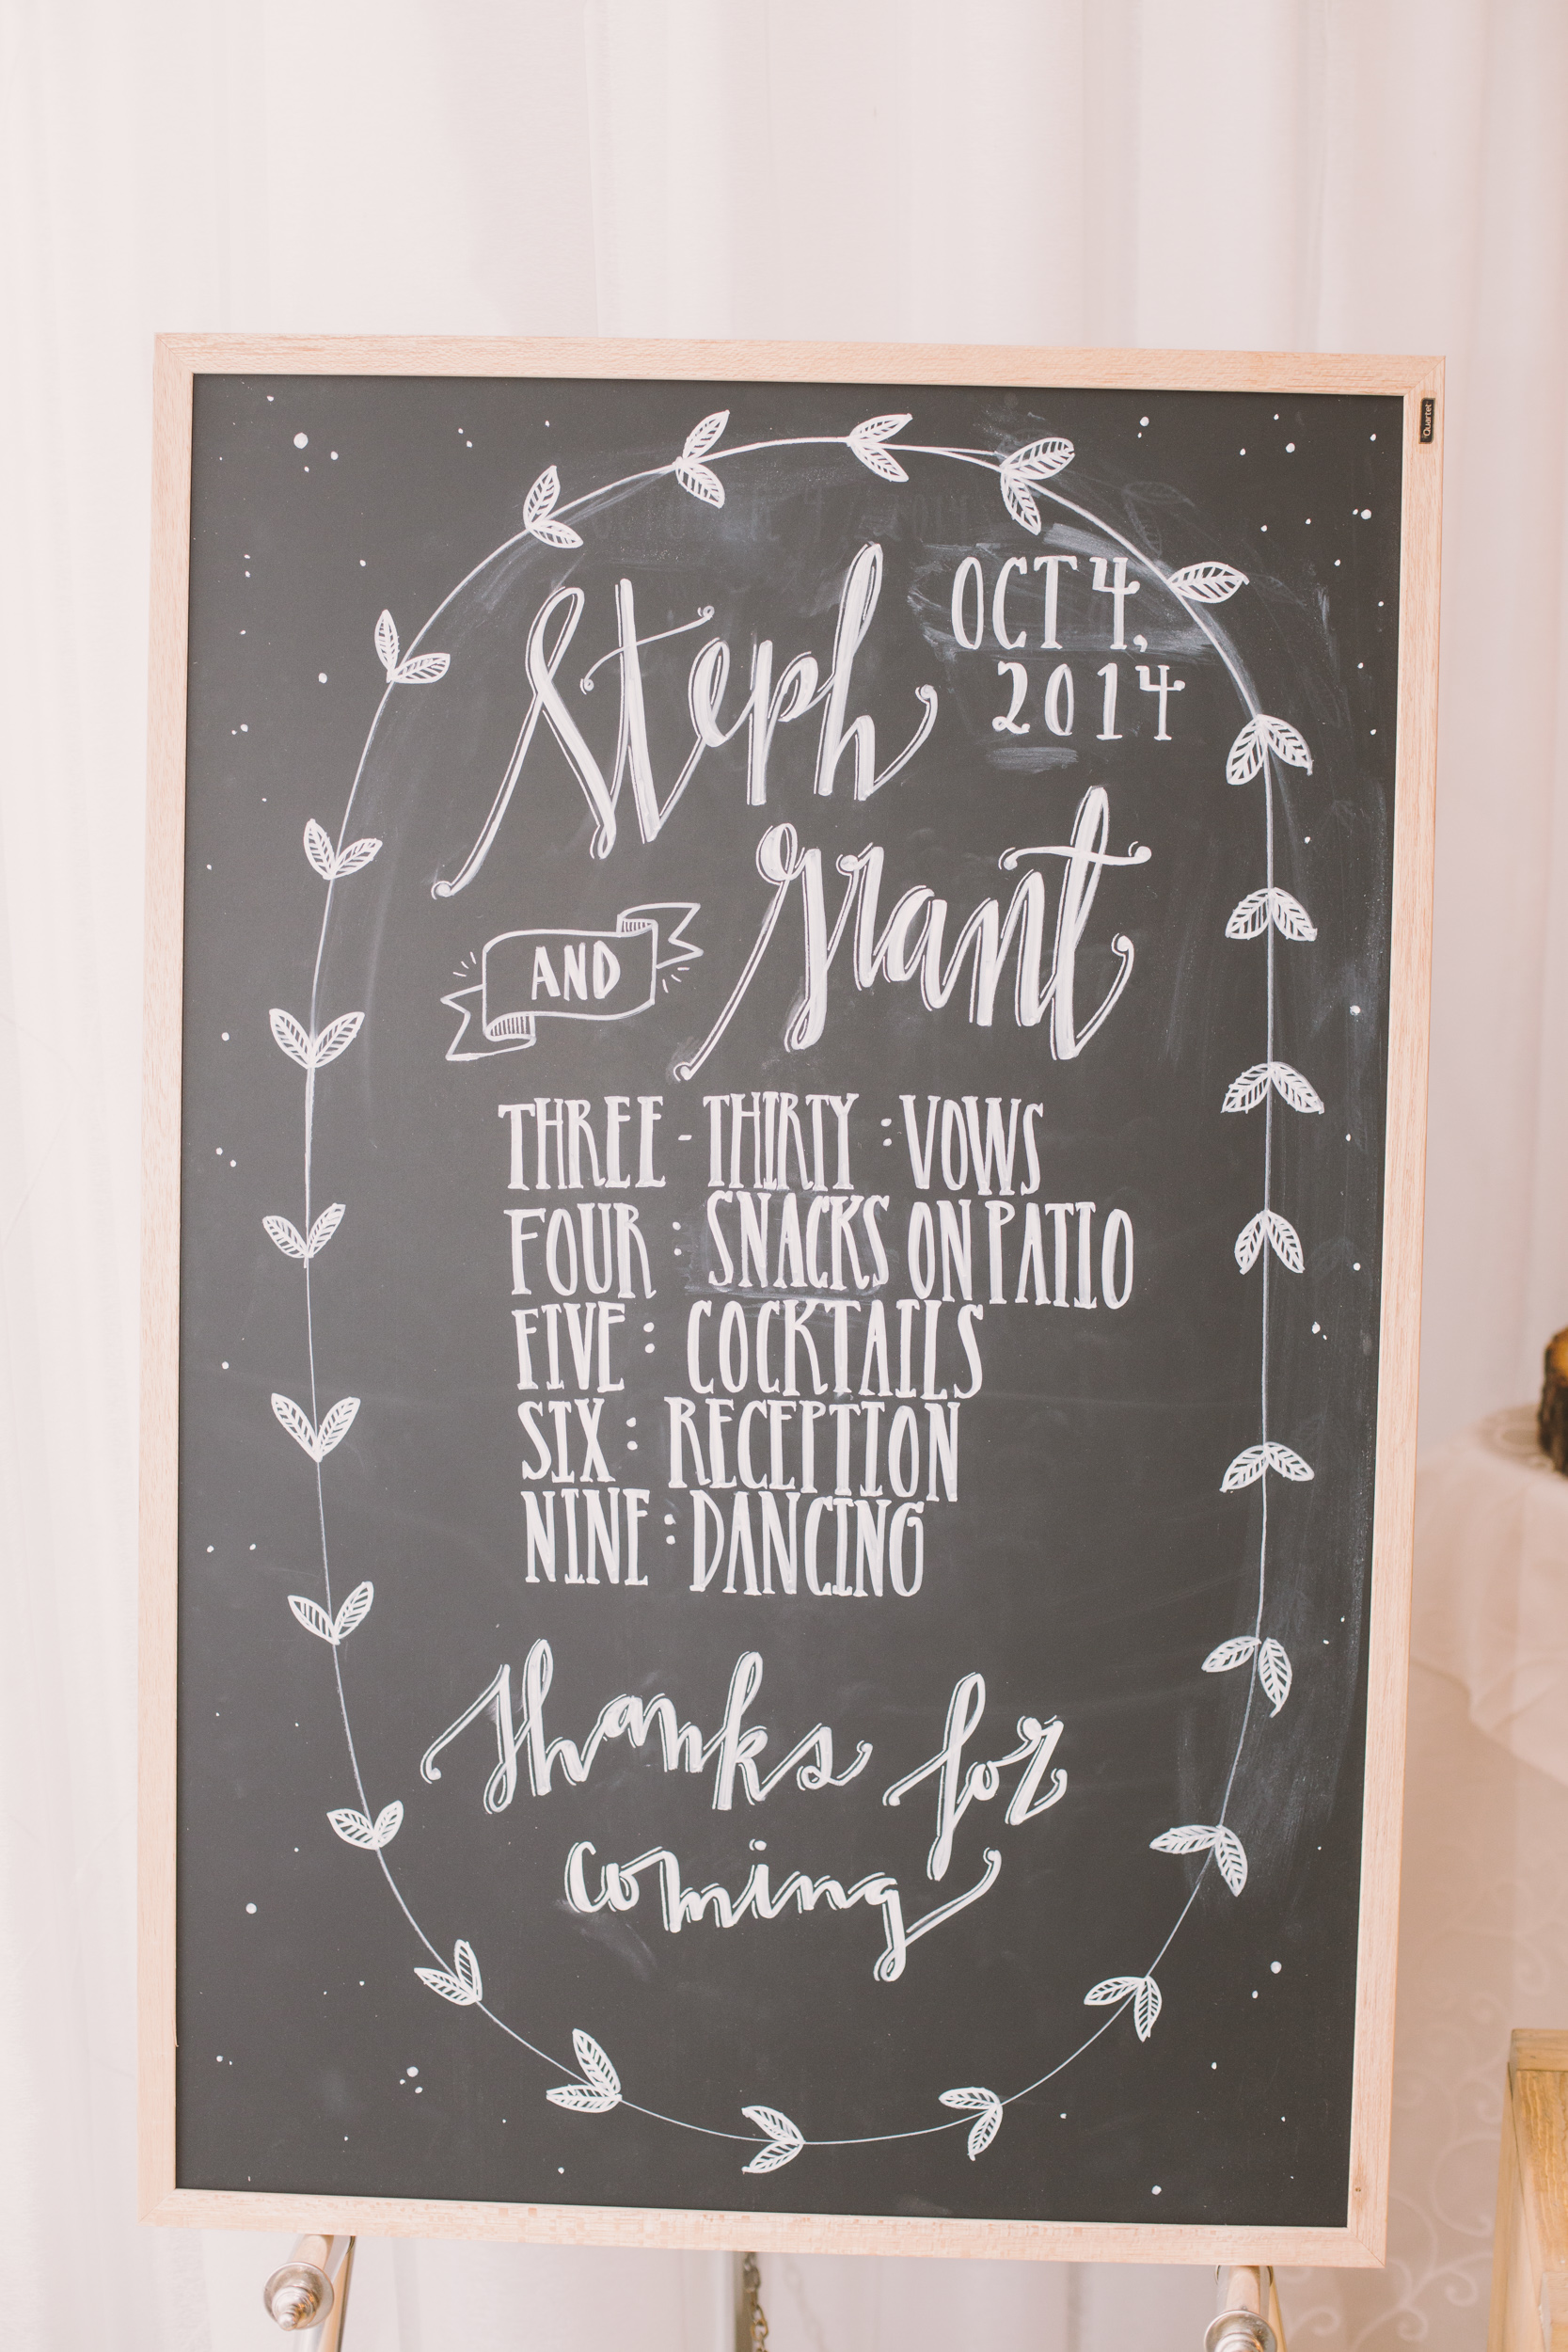 Steph
OCT 4,
2014
AND
grant
THREE-THIRTY : VOWS
FOUR : SNACKS ON PATIO
FIVE : COCKTAILS
SIX : RECEPTION
NINE : DANCING
thanks for
coming
Quartet